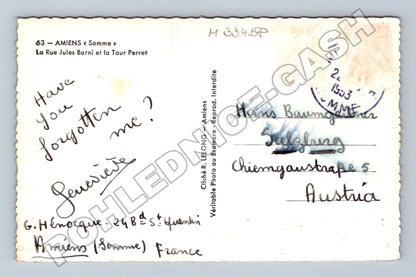 M 3345P
63 — AMIENS « Somme »
La Rue Jules Barni et la Tour Perret
Have
you
forgotten
me?
Geneviève
G. Hénocque - 248 d St Quentin
Amiens (Somme) France
Cliché R. LELONG — Amiens
Véritable Photo au Bromure - Reprod. Interdite
1953
Hans Baumgartner
Salzburg
Chiemgaustraße 5
Austria
POHLEDNICE-GASH